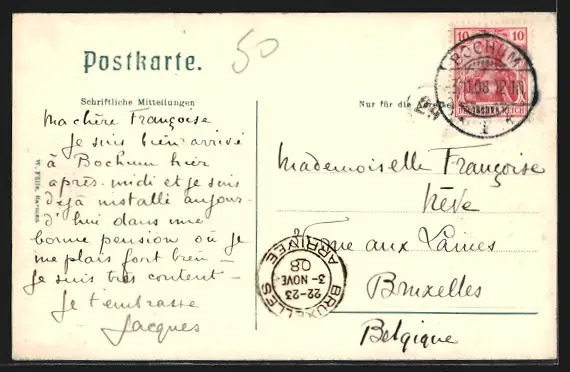 Postkarte.
50
Schriftliche Mitteilungen
Ma chère Françoise
Je suis bien arrivé
à Bochum hier
après-midi et je suis
déjà installé aujour-
d'hui dans une
bonne pension où je
me plais fort bien —
Je suis très content —
Je t'embrasse
Jacques
W. Fülle, Barmen
Nur für die
10 10
DEUTSCHES REICH
BOCHUM
Mademoiselle Françoise
Hève
2 aux Laines
Bruxelles
Belgique
BRUXELLES
22-23
3- NOVE
08
ARRIVEE